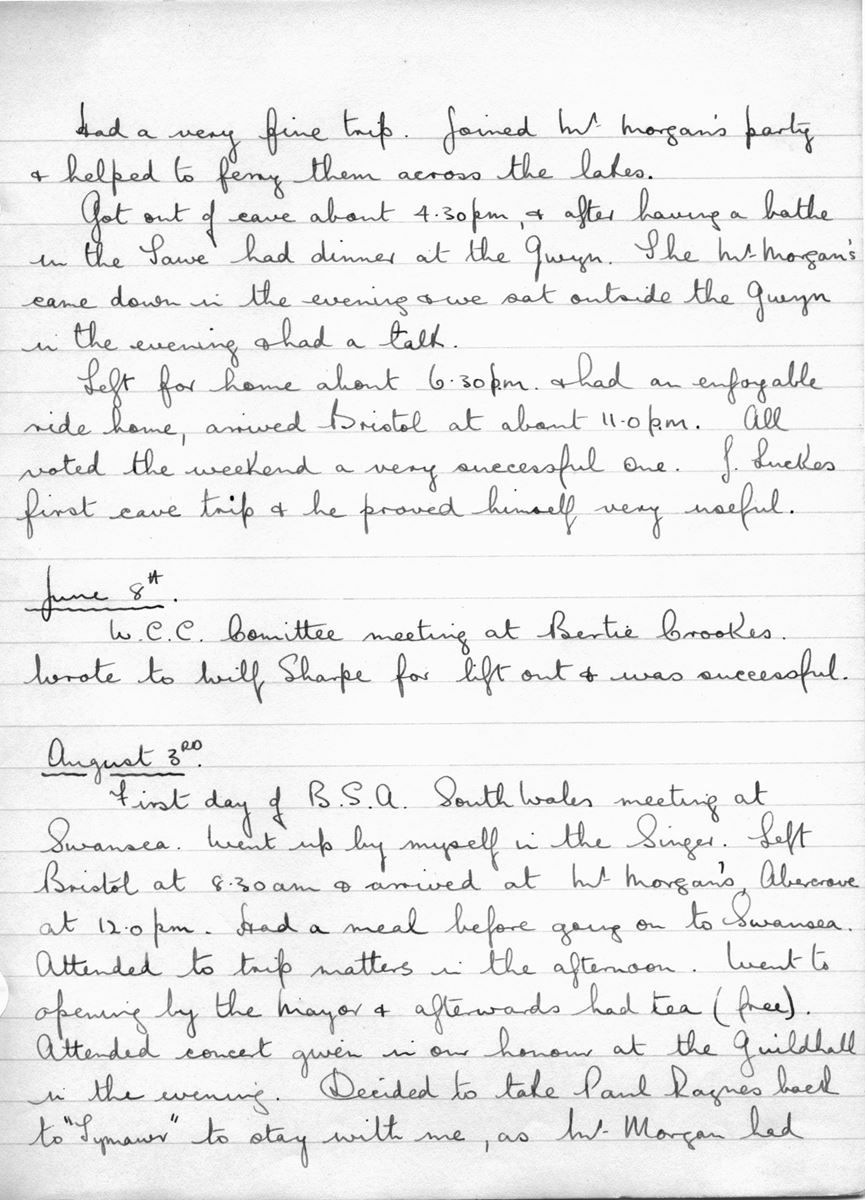 Had a very fine trip. Joined Mr Morgan's party
& helped to ferry them across the lakes.
Got out of cave about 4.30pm, & after having a bathe
in the Tawe had dinner at the Gwyn. The Mr Morgan's
came down in the evening & we sat outside the Gwyn
in the evening & had a talk.
Left for home about 6.30pm. & had an enjoyable
ride home, arrived Bristol at about 11.0 p.m. All
voted the weekend a very successful one. J. Luckes
first cave trip & he proved himself very useful.
June 8th.
W.C.C. Comittee meeting at Bertie Crookes.
Wrote to Wilf Sharpe for lift out & was successful.
August 3RD.
First day of B.S.A. South Wales meeting at
Swansea. Went up by myself in the Singer. Left
Bristol at 8.30am & arrived at Mr Morgan's, Abercrave
at 12.0 pm. Had a meal before going on to Swansea.
Attended to trip matters in the afternoon. Went to
opening by the Mayor & afterwards had tea (free).
Attended concert given in our honour at the Guildhall
in the evening. Decided to take Paul back
to "Tymawr" to stay with me, as Mr. Morgan had